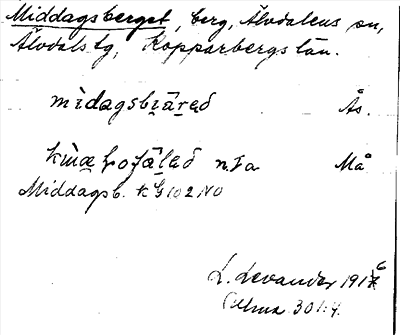 Middagsberget, berg, Älvdalens sn,
Älvdals tg, Kopparbergs län.
mìdagsbi̯ä̀rað Ås.
n. Ia Må
Middagsb. KG 102 NO
L. Levander 1916
30/1.4.